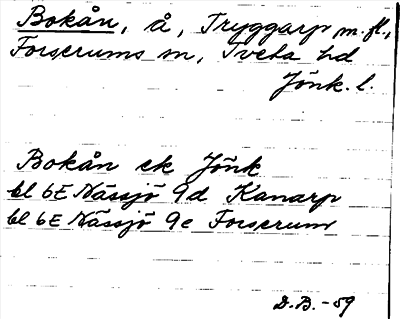 Bokån, å, Tryggarp m.fl.,
Forserums sn, Tveta hd
Jönk. l.
Bokån ek Jönk
bl 6E Nässjö 9d Kanarp
bl 6E Nässjö 9e Forserum
D.B. -59